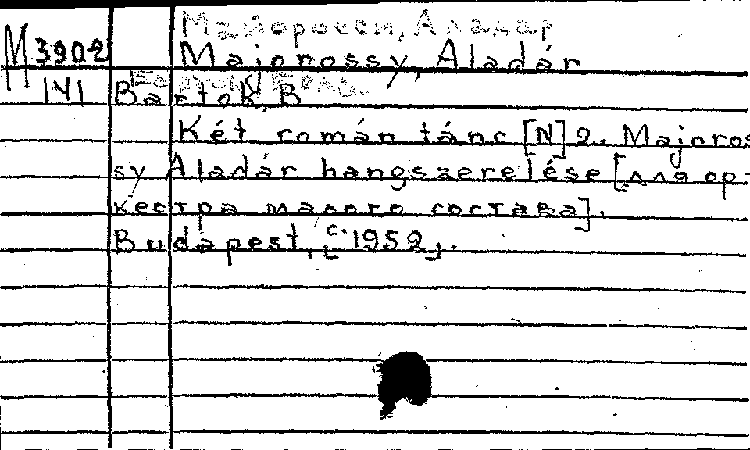 Майоросси, Аладар
М 3902 Majorossy, Aladár
141 Bartók, B.
Két román tánc [N] 2. Majoros-
sy Aladár hangszerelése [для ор-
кестра малого состава].
Budapest, [с. 1952].